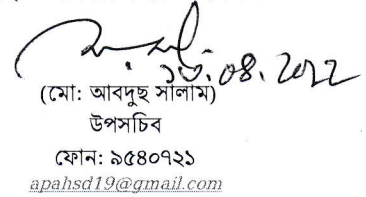 ১৬.08.2022
(মো: আবদুছ সালাম)
উপসচিব
ফোন: ৯৫৪০৭২১
apahsd19@gmail.com